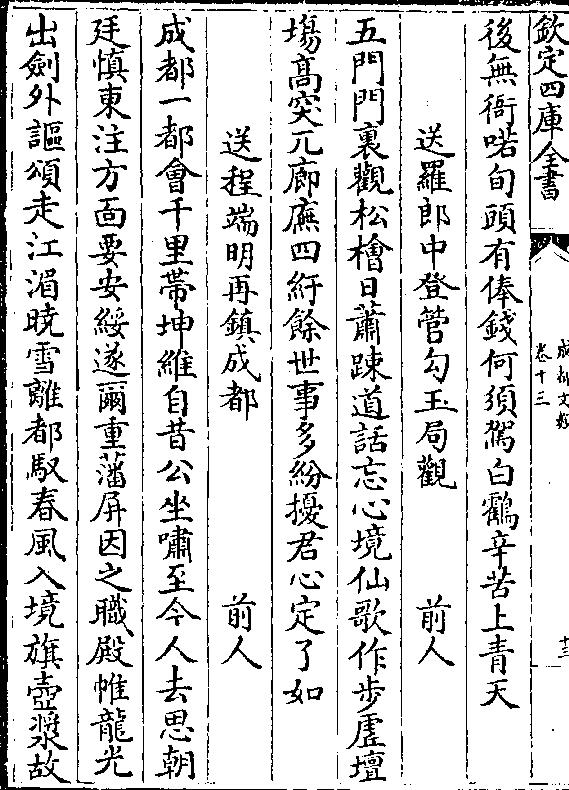 欽定四庫全書
成都文類
卷十三
十三
後無衙喏旬頭有俸錢何須駕白鸖辛苦上青天
送羅郎中登管勾玉局觀 前人
五門門裏觀松檜日蕭踈道話忘心境仙歌作步虚壇
塲髙突兀廊廡四紆餘世事多紛擾君心定了如
送程端明再鎮成都 前人
成都一都會千里帶坤維自昔公坐嘯至今人去思朝
廷慎東注方面要安綏遂爾重藩屏因之職殿帷龍光
出劍外謳頌走江湄曉雪離都馭春風入境旗壺漿故